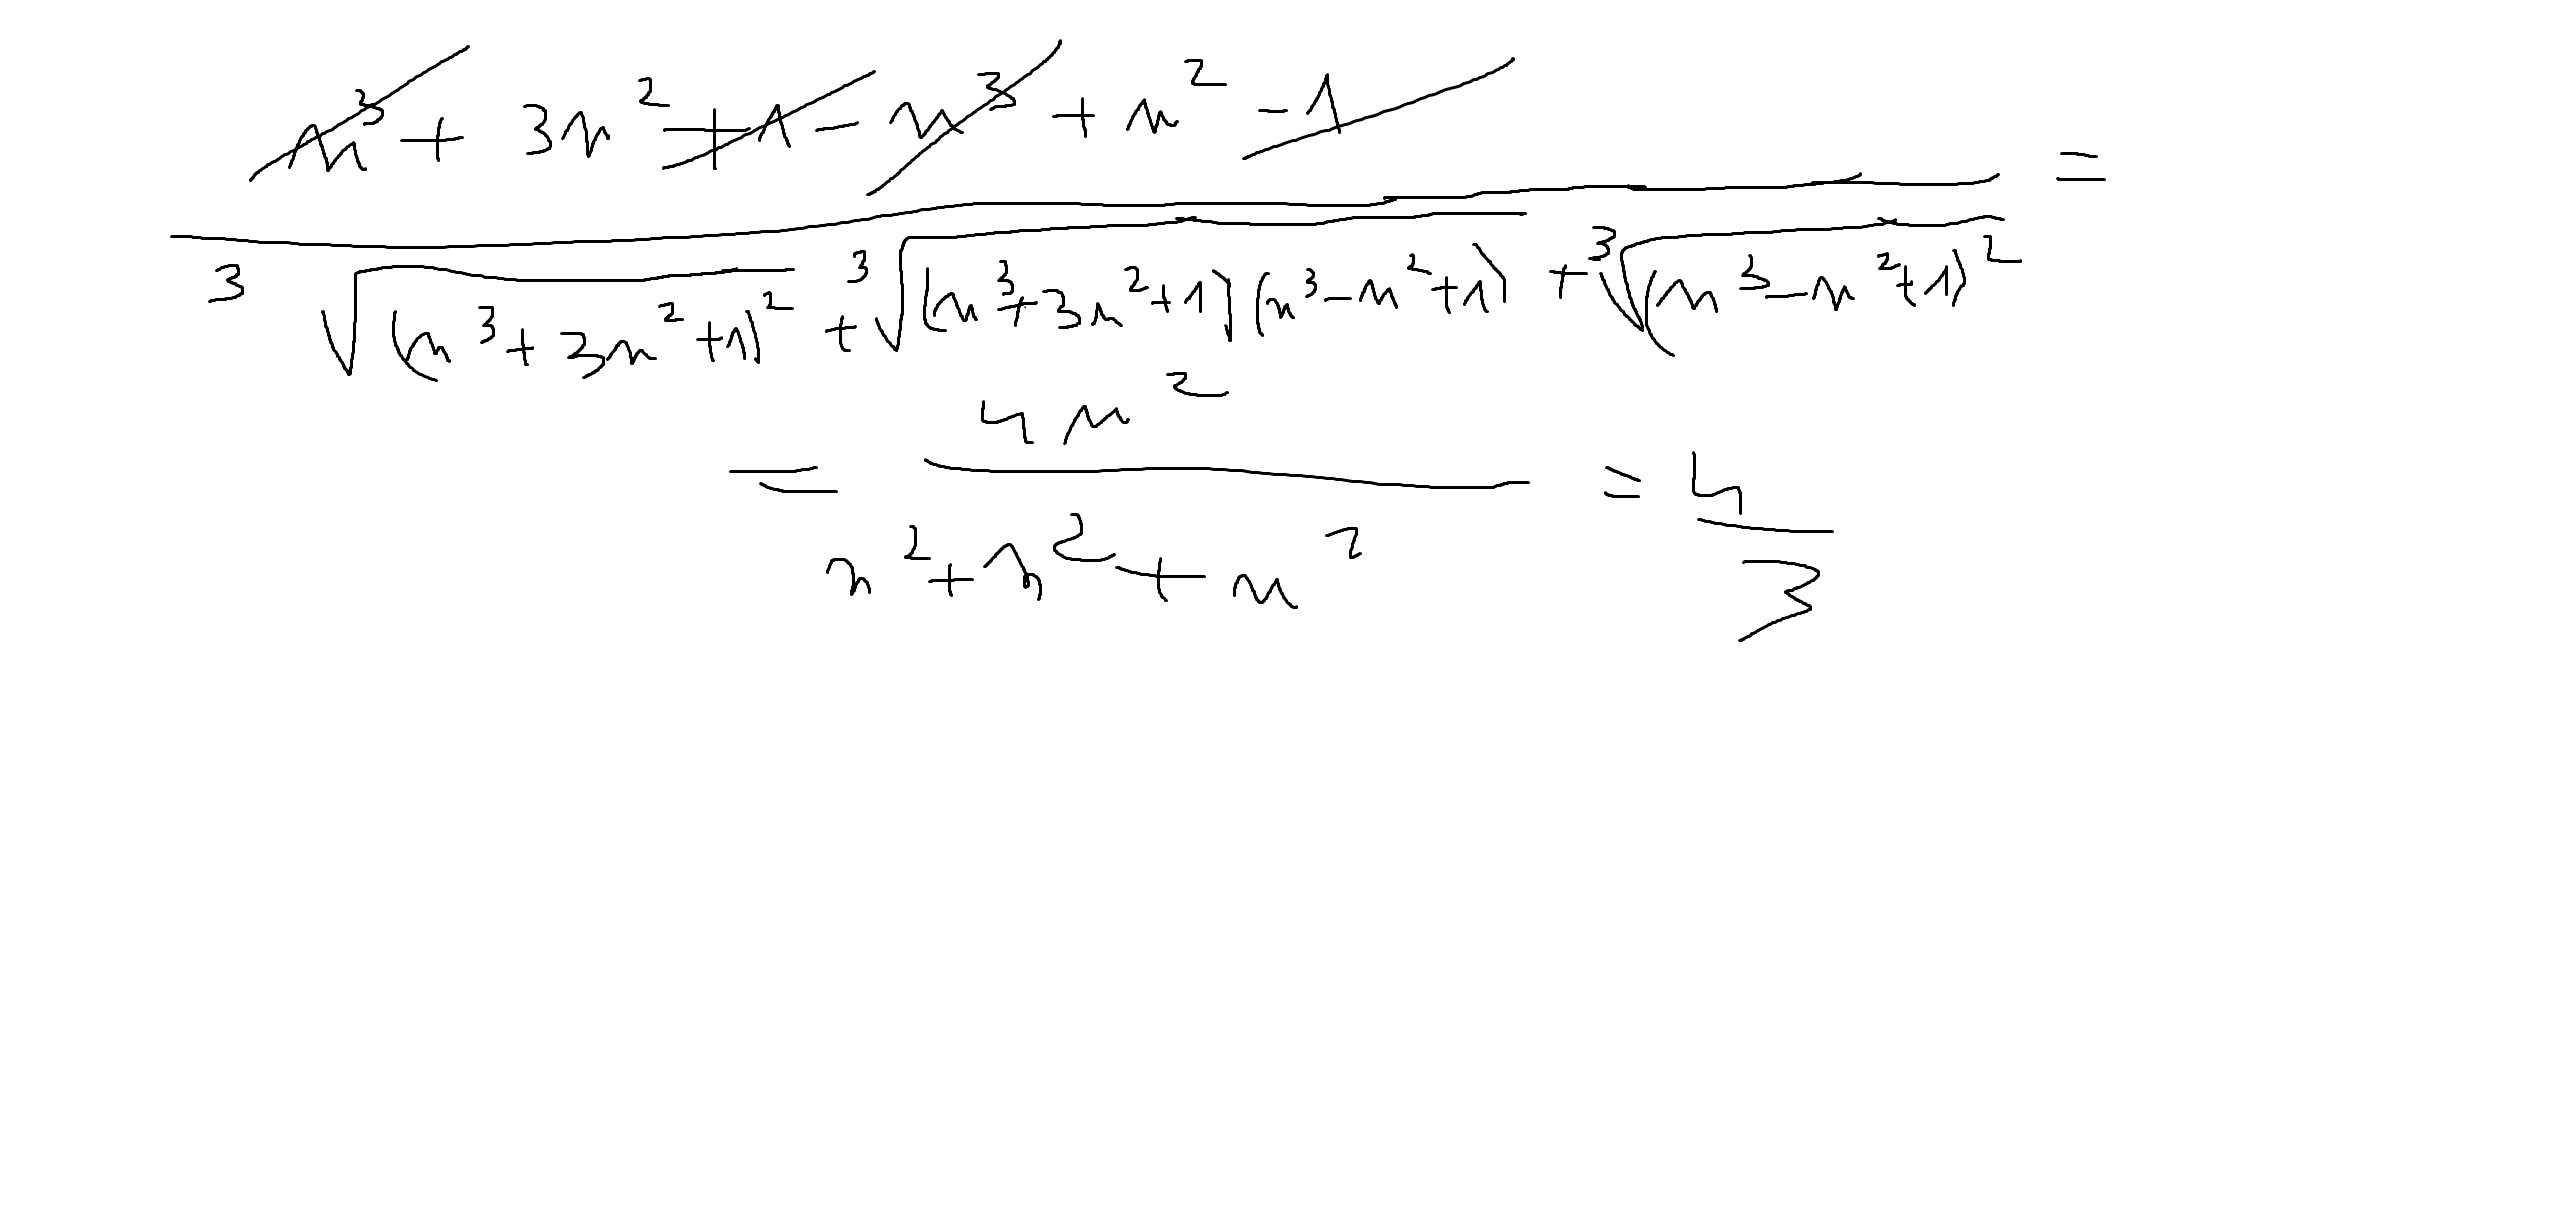 n³ + 3n² + 1 - n³ + n² - 1 =
³√(n³ + 3n² + 1)² + ³√(n³ + 3n² + 1)(n³ - n² + 1) + ³√(n³ - n² + 1)²
= 4n² = 4
n² + n² + n² 3